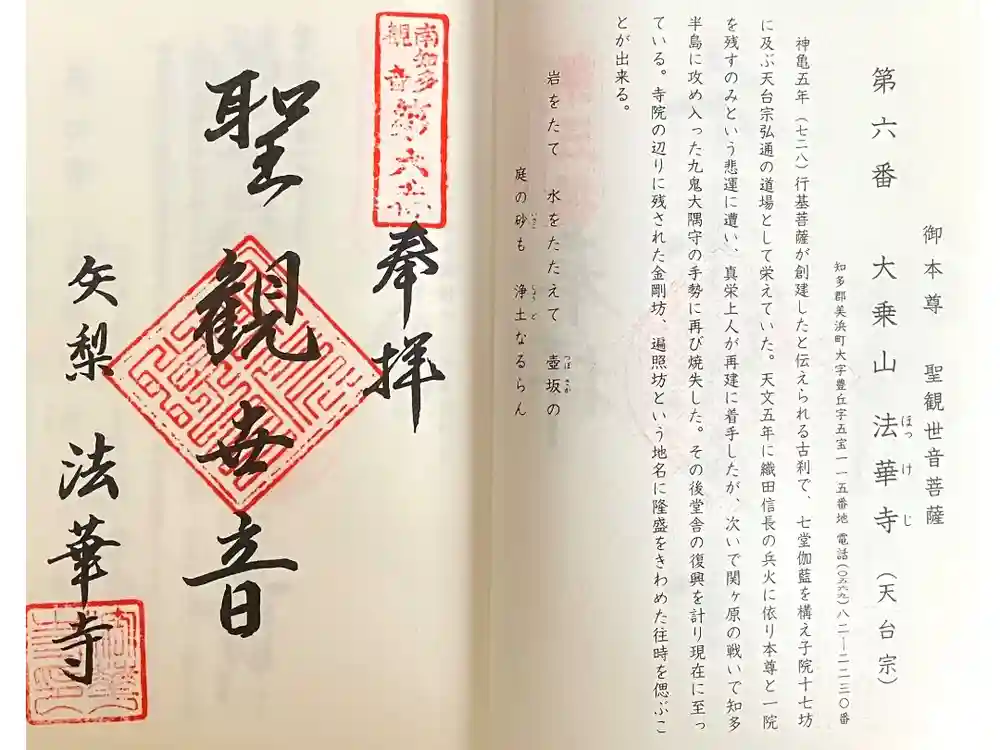 第六番　大乗山　法華寺（天台宗）
ほっけじ
御本尊　聖観世音菩薩
知多郡美浜町大字豊丘字五宝一一五番地　電話(〇五六九)八二―二二三〇番
神亀五年（七二八）行基菩薩が創建したと伝えられる古刹で、七堂伽藍を構え子院十七坊
に及ぶ天台宗弘通の道場として栄えていた。天文五年に織田信長の兵火に依り本尊と一院
を残すのみという悲運に遭い、真栄上人が再建に着手したが、次いで関ヶ原の戦いで知多
半島に攻め入った九鬼大隅守の手勢に再び焼失した。その後堂舎の復興を計り現在に至っ
ている。寺院の辺りに残された金剛坊、遍照坊という地名に隆盛をきわめた往時を偲ぶこ
とが出来る。
岩をたて　水をたたえて　壺坂の
つぼさか
庭の砂も　浄土なるらん
いさご　じょうど
南知多
観音
第六番
奉拝
聖観世音
矢梨　法華寺